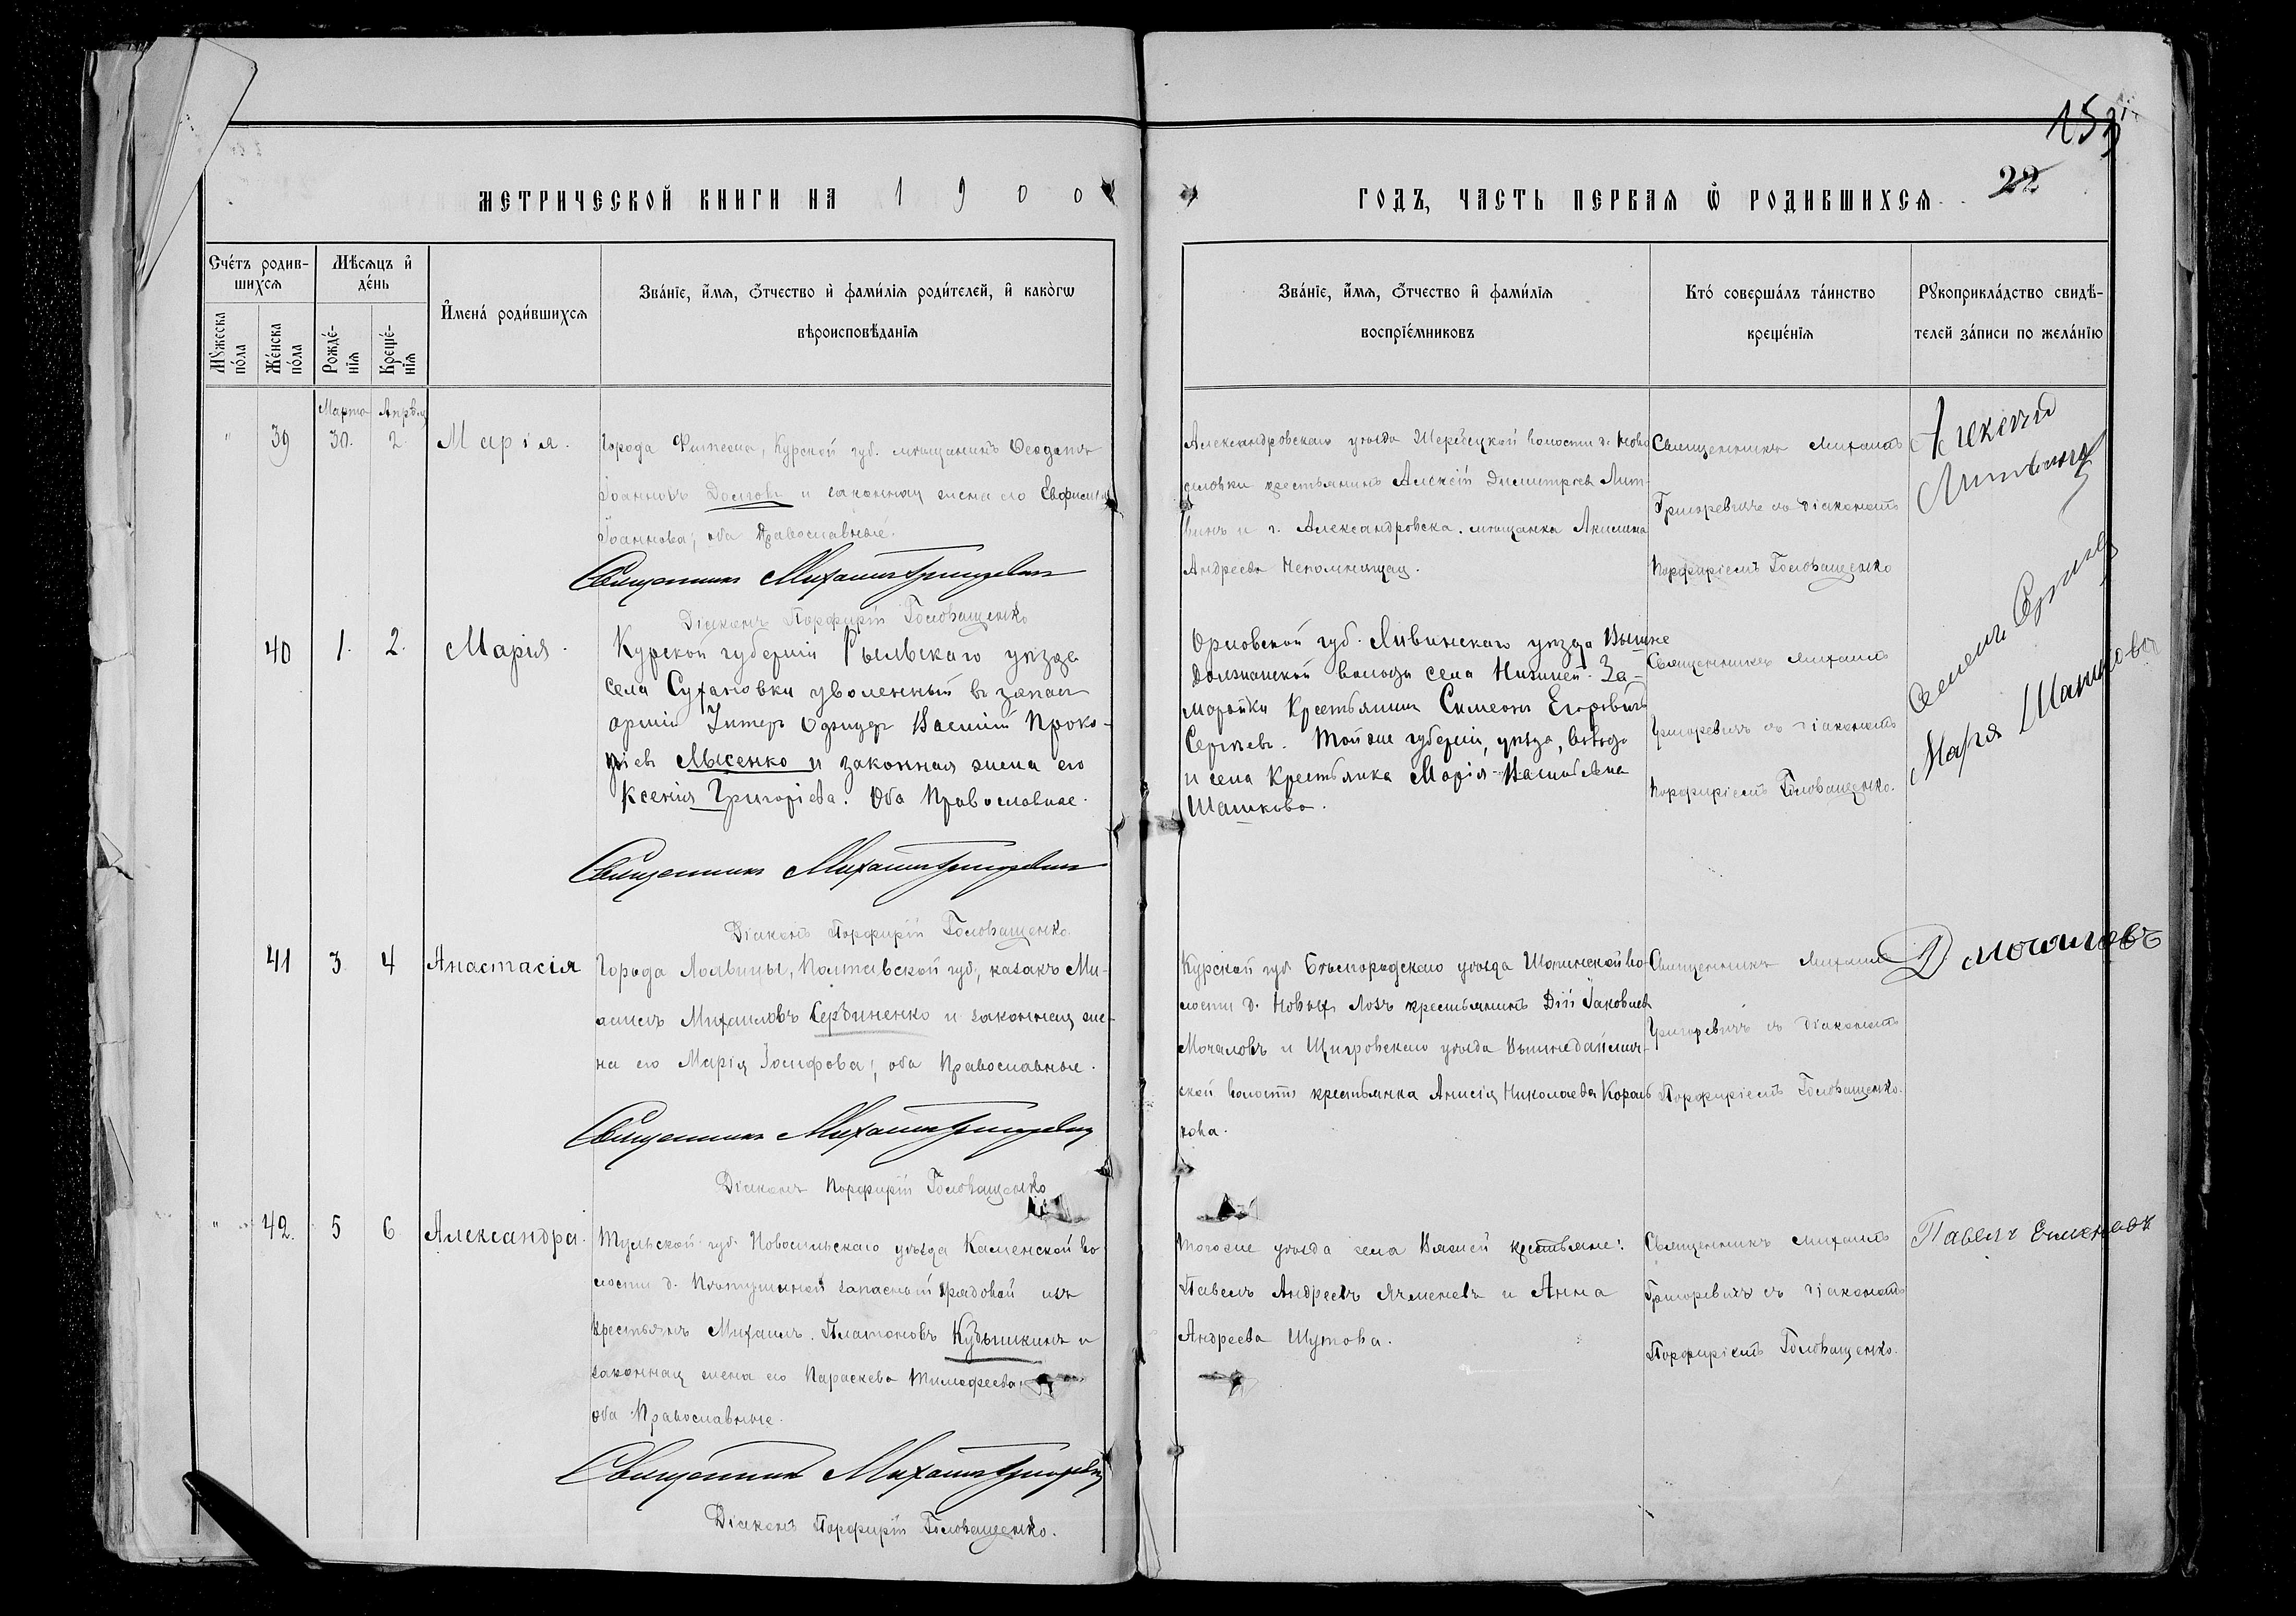 153
22
МЕТРИЧЕСКОЙ КНИГИ НА 1900
ГОДЪ, ЧАСТЬ ПЕРВАЯ Ѡ РОДИВШИХСЯ
Счетъ родив-
шихся
Мѣсяцъ и
день
Мужеска
пола
Женска
пола
Рожде-
нія
Креще-
нія
Имена родившихся
Званіе, имя, отчество и фамилія родителей, и какогѡ
вѣроисповѣданія
Званіе, имя, отчество и фамилія
воспріемниковъ
Кто совершалъ таинство
крещенія
Рукоприкладство свидѣ-
телей записи по желанію
Марта Апрѣля
" 39 30. 2. Марія.
Города Фатежа, Курской губ. мѣщанинъ Ѳеодотъ
Іоанновъ Долговъ и законная жена его Евфросинія
Іоаннова; оба Православные.
Священникъ Михаилъ Григоревичъ
Діаконъ Порфирій Головащенко
Александровскаго уѣзда д. Ново
крестьянинъ Алексій Димитріевъ Лит-
винъ и г. Александровска мѣщанка Акилина
Андреева Непомнящая.
Священникъ Михаилъ
Григоревичъ съ діакономъ
Порфиріемъ Головащенко
Алексей
Литвинъ
40 1. 2. Марія.
Курской губерніи Рыльскаго уѣзда
села Сухановки уволенный въ запасъ
арміи Унтеръ Офицеръ Василій Проко-
піевъ Лысенко и законная жена его
Ксенія Григоріева. Оба Православные.
Священникъ Михаилъ Григоревичъ
Діаконъ Порфирій Головащенко.
Орловской губ. Ливинскаго уѣзда Вышне
Должанской волости села Нижней За-
морайки Крестьянинъ Симеонъ Егоровичъ
Сергѣевъ. Той же губерніи, уѣзда, волости
и села Крестьянка Марія Васильевна
Шашкова.
Священникъ Михаилъ
Григоревичъ съ діакономъ
Порфиріемъ Головащенко.
Семенъ Сергѣевъ
Марія Шашкова
41 3 4 Анастасія
Города Лохвицы, Полтавской губ., казакъ Ми-
хаилъ Михаиловъ Сердиненко и законная же-
на его Марія Іосифова; оба Православные.
Священникъ Михаилъ Григоревичъ
Діаконъ Порфирій Головащенко
Курской губ. Бѣлогородскаго уѣзда Шопинской во-
лости д. Новыхъ Лозъ крестьянинъ Дій Іаковлевъ
Мочаловъ и Щигровскаго уѣзда
ской волости крестьянка Анисія Николаева Кораб
кова.
Священникъ Михаилъ
Григоревичъ съ діакономъ
Порфиріемъ Головащенко.
Д Мочаловъ
" 42. 5 6 Александра.
Тульской губ. Новосильскаго уѣзда Каменской во-
лости д. Пѣтушиной запасный рядовой изъ
крестьянъ Михаилъ Платоновъ Кубышкинъ и
законная жена его Параскева Тимофеева;
оба Православные.
Священникъ Михаилъ Григоревичъ
Діаконъ Порфирій Головащенко.
Того же уѣзда села Вяжей крестьяне:
Павелъ Андреевъ Ячменевъ и Анна
Андреева Шутова.
Священникъ Михаилъ
Григоревичъ съ діакономъ
Порфиріемъ Головащенко.
Павелъ Ечменевъ